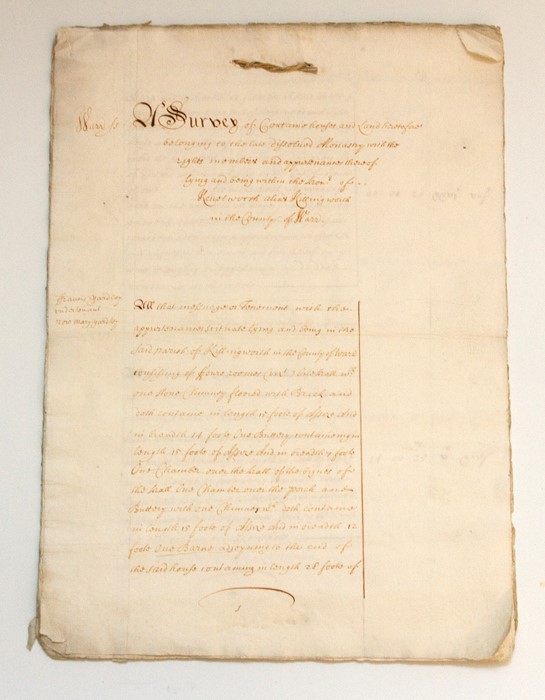 Warr ss
A Survey of Certaine houses and Land heretofore
belonging to the late dissolved Monastry with the
rights members and appurtenances thereof
lying and being within the
Kenelworth alias Killingworth
in the County of Warr.
now Mary Yardley
All that messuage or Tenement with the
appurtenances scituate lying and being in the
said parish of Killingworth in the County of Warr
consisting of fowre roomes One Hall wth
one stone Chimney floored with Brick and
doth containe in length 15 foote of Assize and
in breadth 14 foote One Buttery containeing in
length 15 foote of Assize and in breadth 7 foote
One Chamber over the Hall of the bignes of
the Hall One Chamber over the porch and
Buttery with one Chimney wch doth containe
in length 15 foote of Assize and in breadth 12
foote One Barne adjoyning to the end of
the said house containing in length 28 foote of